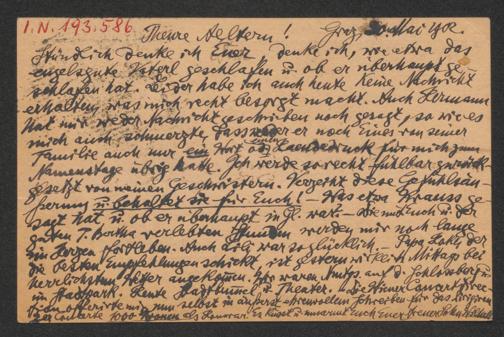 I.N. 193.586
Theure Aeltern! Graz, 30 Mai 902.
Stündlich denke ich Euer denke ich, wo etwa das
engelsgute Vaterl geschlafen u. ob er überhaupt ge-
schlafen hat. Leider habe ich auch heute keine Nachricht
erhalten, was mich recht besorgt macht. Auch Hermann
hat mir weder Nachricht geschrieben noch gesagt, so wie es
mich auch schmerzte dass weder er noch Eines von seiner
Familie auch nur ein Wort od. Händedruck für mich zum
Namenstage übrig hatte. Ich werde so recht fühlbar zurück-
gesetzt von meinen Geschwistern. Verzeiht diese Gefühlsäu-
ßerung u. behaltet sie für Euch! – Was etwa Strauss ge-
sagt hat u. ob er überhaupt in Gl. war? – Die mit Euch u. der
guten T. Bertha verlebten Stunden werden mir noch lange
im Herzen fortleben. Auch Lili war so glücklich – Papa, der
die besten Empfehlungen schickt, ist gestern wirklich Mittags bei
herrlichstem Wetter angekommen. Wir waren Nmttgs. auf d. Schlossberg u.
im Stadtpark. Heute Stadtbummel u. Theater. – Die Wiener Concert-Direc-
tion offerirte mir nun selbst in äußerst ehrenvollem Schreiben für das Dirigiren
der Concerte 1000 Kronen als Honorar. Es küsst u. umarmt Euch Euer treuer Sohn